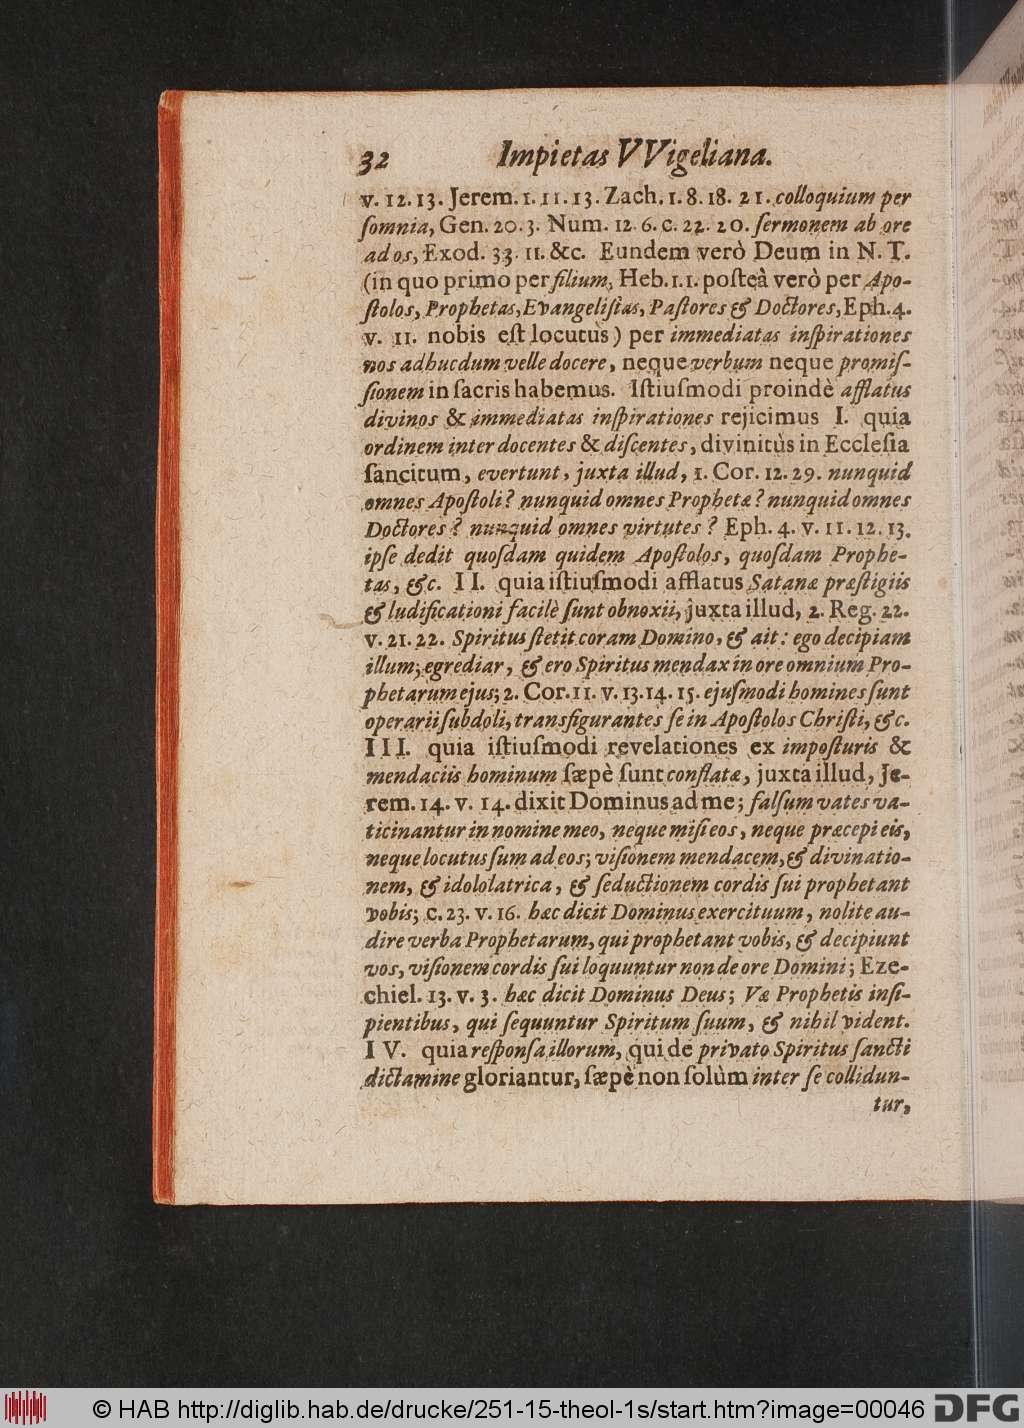 32 Impietas VVigeliana.
v. 12. 13. Jerem. 1. 11. 13. Zach. 1. 8. 18. 21. colloquium per
ſomnia, Gen. 20. 3. Num. 12. 6. c. 22. 20. ſermonem ab ore
ad os, Exod. 33. 11. &c. Eundem verò Deum in N. T.
(in quo primo per filium, Heb. 1. 1. poſteà verò per Apo-
ſtolos, Prophetas, Evangeliſtas, Paſtores & Doctores, Eph. 4.
v. 11. nobis eſt locutus) per immediatas inſpirationes
nos adhucdum velle docere, neque verbum neque promiſ-
ſionem in ſacris habemus. Iſtiuſmodi proindè afflatus
divinos & immediatas inſpirationes rejicimus I. quia
ordinem inter docentes & diſcentes, divinitùs in Eccleſia
ſancitum, evertunt, juxta illud, 1. Cor. 12. 29. nunquid
omnes Apoſtoli? nunquid omnes Prophetæ? nunquid omnes
Doctores? nunquid omnes virtutes? Eph. 4. v. 11. 12. 13.
ipſe dedit quoſdam quidem Apoſtolos, quoſdam Prophe-
tas, &c. II. quia iſtiuſmodi afflatus Satanæ præſtigiis
& ludificationi facilè ſunt obnoxii, juxta illud, 2. Reg. 22.
v. 21. 22. Spiritus ſtetit coram Domino, & ait: ego decipiam
illum; egrediar, & ero Spiritus mendax in ore omnium Pro-
phetarum ejus; 2. Cor. 11. v. 13. 14. 15. ejuſmodi homines ſunt
operarii ſubdoli, transfigurantes ſe in Apoſtolos Chriſti, &c.
III. quia iſtiuſmodi revelationes ex impoſturis &
mendaciis hominum ſæpè ſunt conflatæ, juxta illud, Je-
rem. 14. v. 14. dixit Dominus ad me; falſum vates va-
ticinantur in nomine meo, neque miſi eos, neque præcepi eis,
neque locutus ſum ad eos; viſionem mendacem, & divinatio-
nem, & idololatrica, & ſeductionem cordis ſui prophetant
vobis; c. 23. v. 16. hæc dicit Dominus exercituum, nolite au-
dire verba Prophetarum, qui prophetant vobis, & decipiunt
vos, viſionem cordis ſui loquuntur non de ore Domini; Eze-
chiel. 13. v. 3. hæc dicit Dominus Deus; Væ Prophetis inſi-
pientibus, qui ſequuntur Spiritum ſuum, & nihil vident.
IV. quia reſponſa illorum, qui de privato Spiritus ſancti
dictamine gloriantur, ſæpè non ſolùm inter ſe collidun-
tur,
© HAB http://diglib.hab.de/drucke/251-15-theol-1s/start.htm?image=00046 DFG